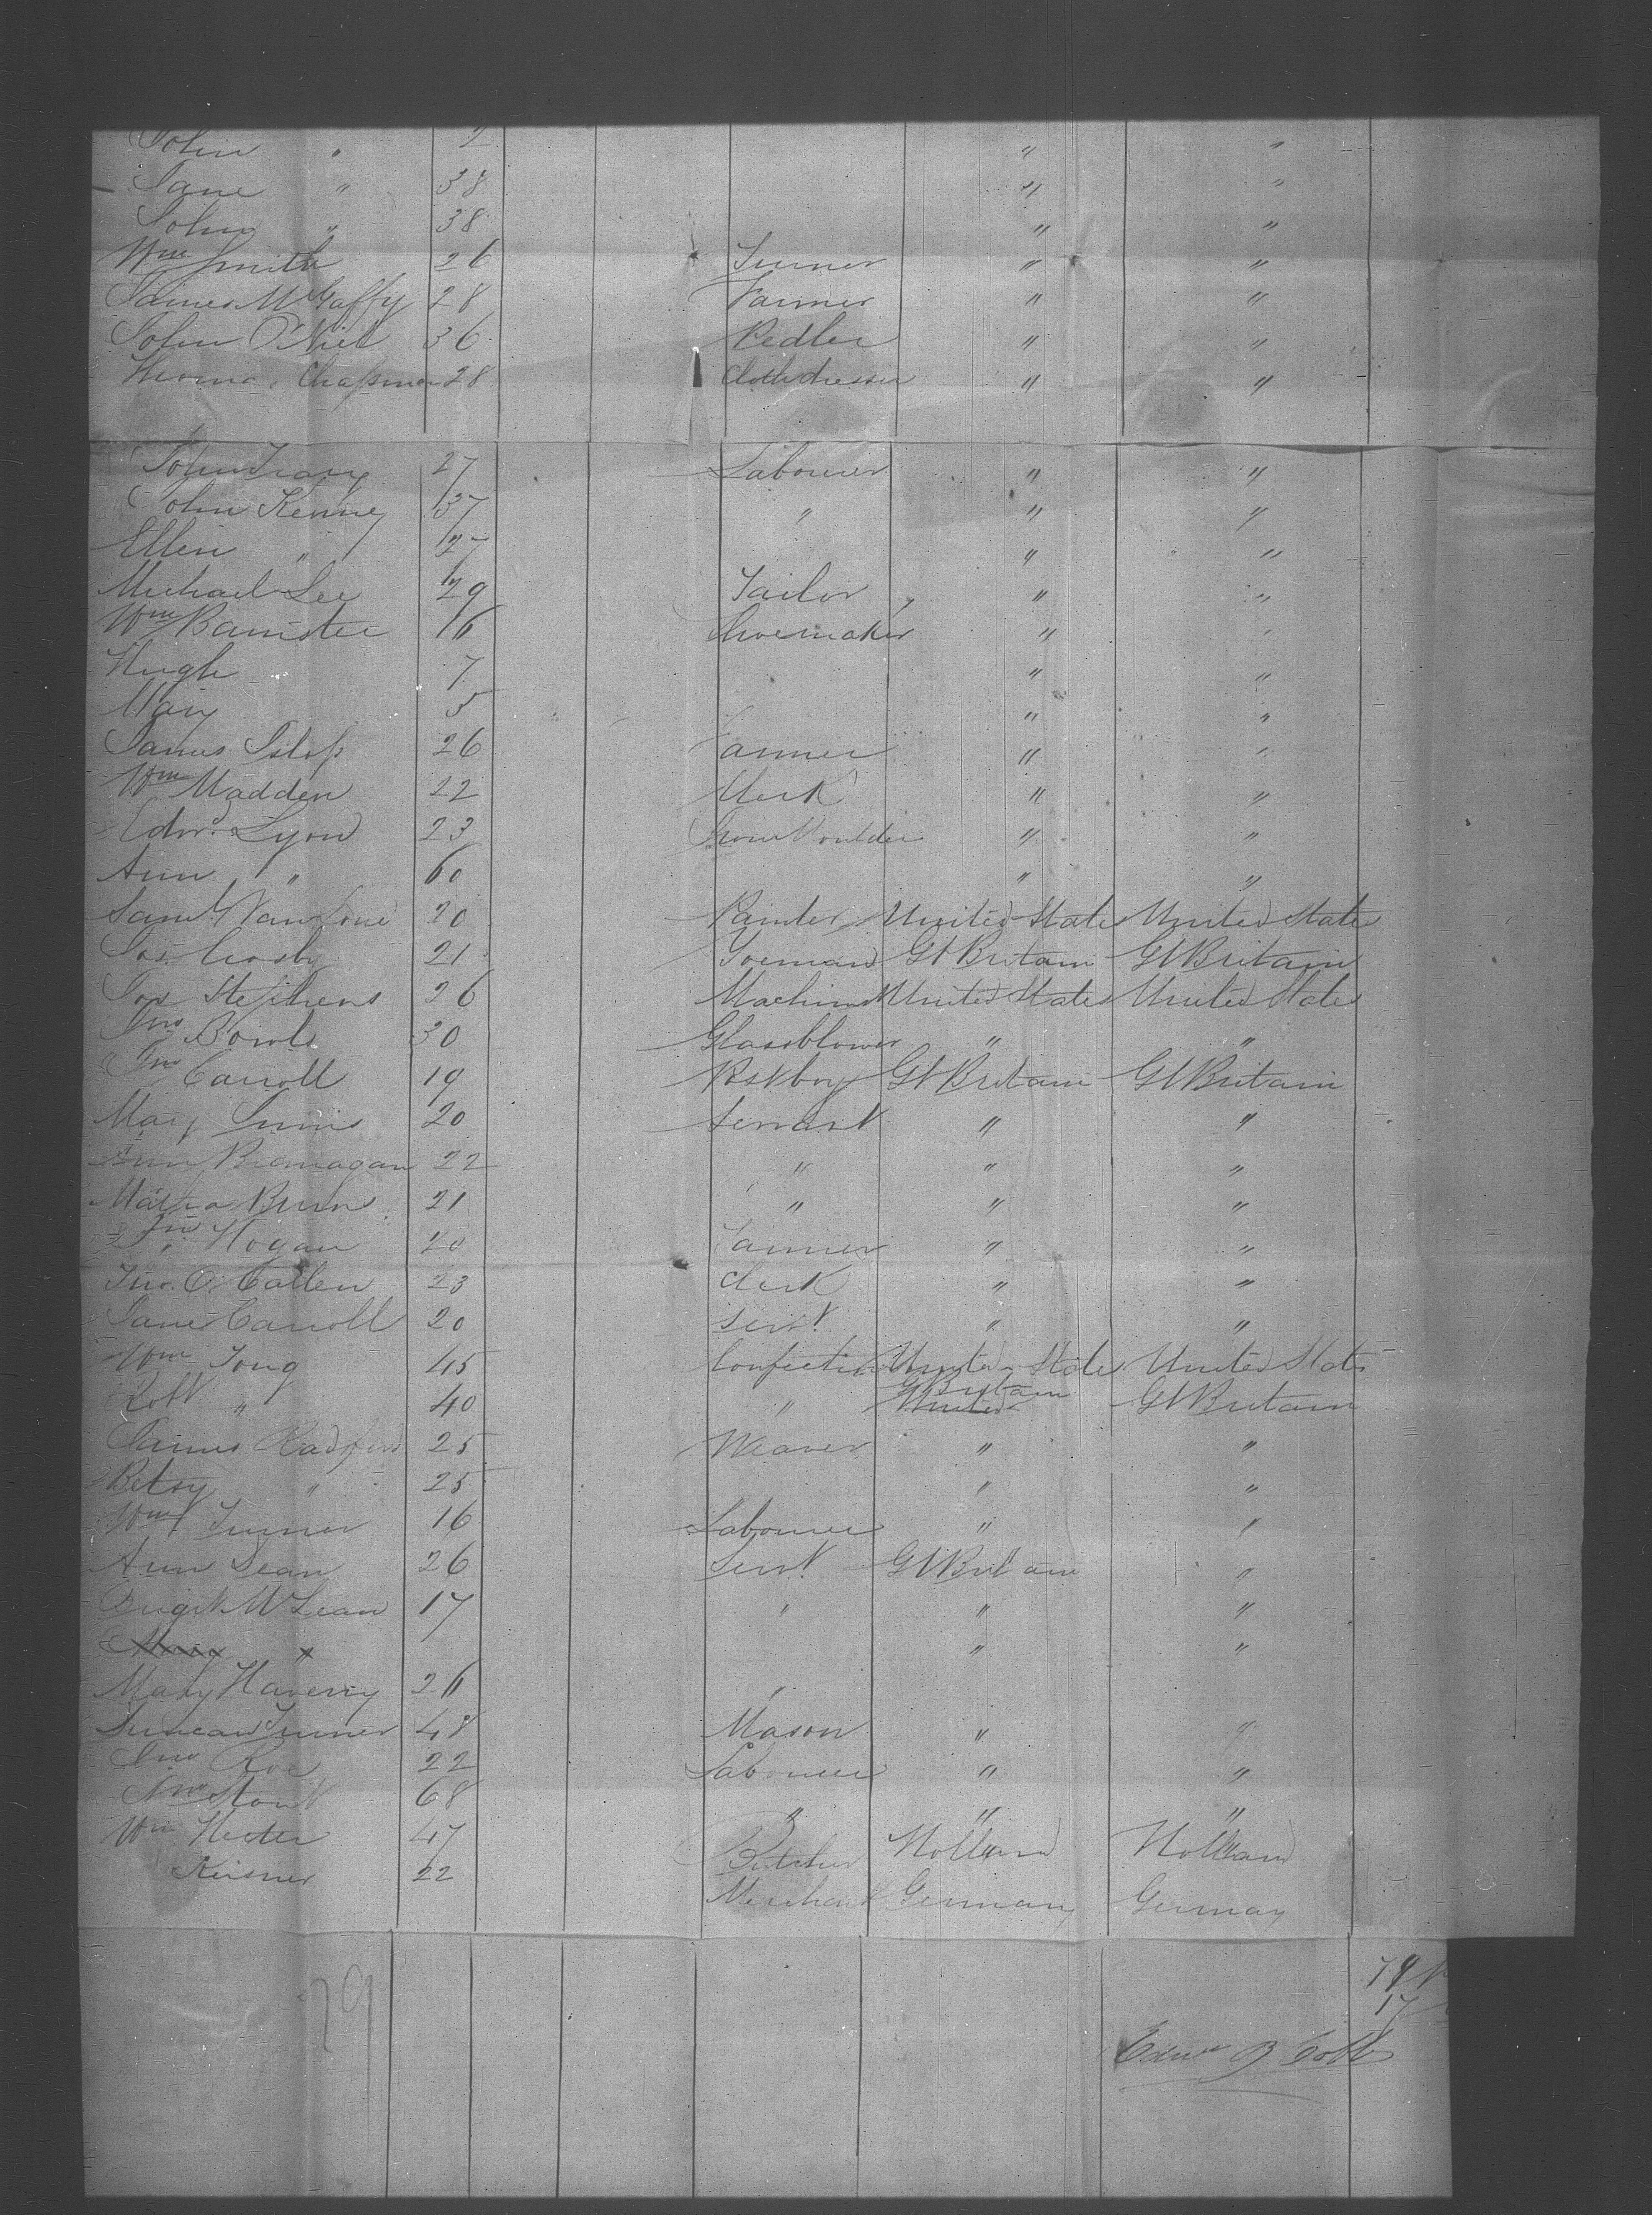 John " 2 " "
Jane " 38 " "
John " 38 " "
Wm Smith 26 Turner " "
James McGaffy 28 Farmer " "
John O'Niel 36 Pedler " "
Thomas Chapman 28 Clothdresser " "
John Tracy 27 Labourer " "
John Kenney 37 " " "
Ellen " 27 " "
Michael Lee 29 Tailor " "
Wm Banister 16 Shoemaker " "
Hugh 7 " "
Mary 5 " "
James 26 " "
Wm Madden 22 Clerk " "
Edwd Lyon 23 Iron Moulder " "
Ann " 60 " "
Saml 20 Painter United State United State
Jos. Crosby 21 Yoeman Gt Britain Gt Britain
Jos Stephens 26 Machinist United States United States
Jno Bowls 30 Glassblower " "
Jno Carroll 19 Gt Britain Gt Britain
Mary 20 Servant " "
Ann Branagan 22 " " "
Martha Burn 21 " " "
Jno Hogan 20 " "
Jno. O. Callen 23 Clerk " "
Jane Carroll 20 Servt " "
Wm Tong 45 United State United State
Robt " 40 " Gt Britain Gt Britain
James Radford 25 Weaver " "
Betsy " 25 " "
Wm Turner 16 Labourer " "
Ann Dean 26 Servt Gt Britain "
McLean 17 " " "
Mary " " "
Mary Haverny 26 "
Duncan Turner 48 Mason " "
Jno Roe 22 Labourer " "
68 " " "
Wm Hester 47 Butcher Holland Holland
Keisner 22 Merchant Germany Germany
79
17
79
Edwd B Cobb